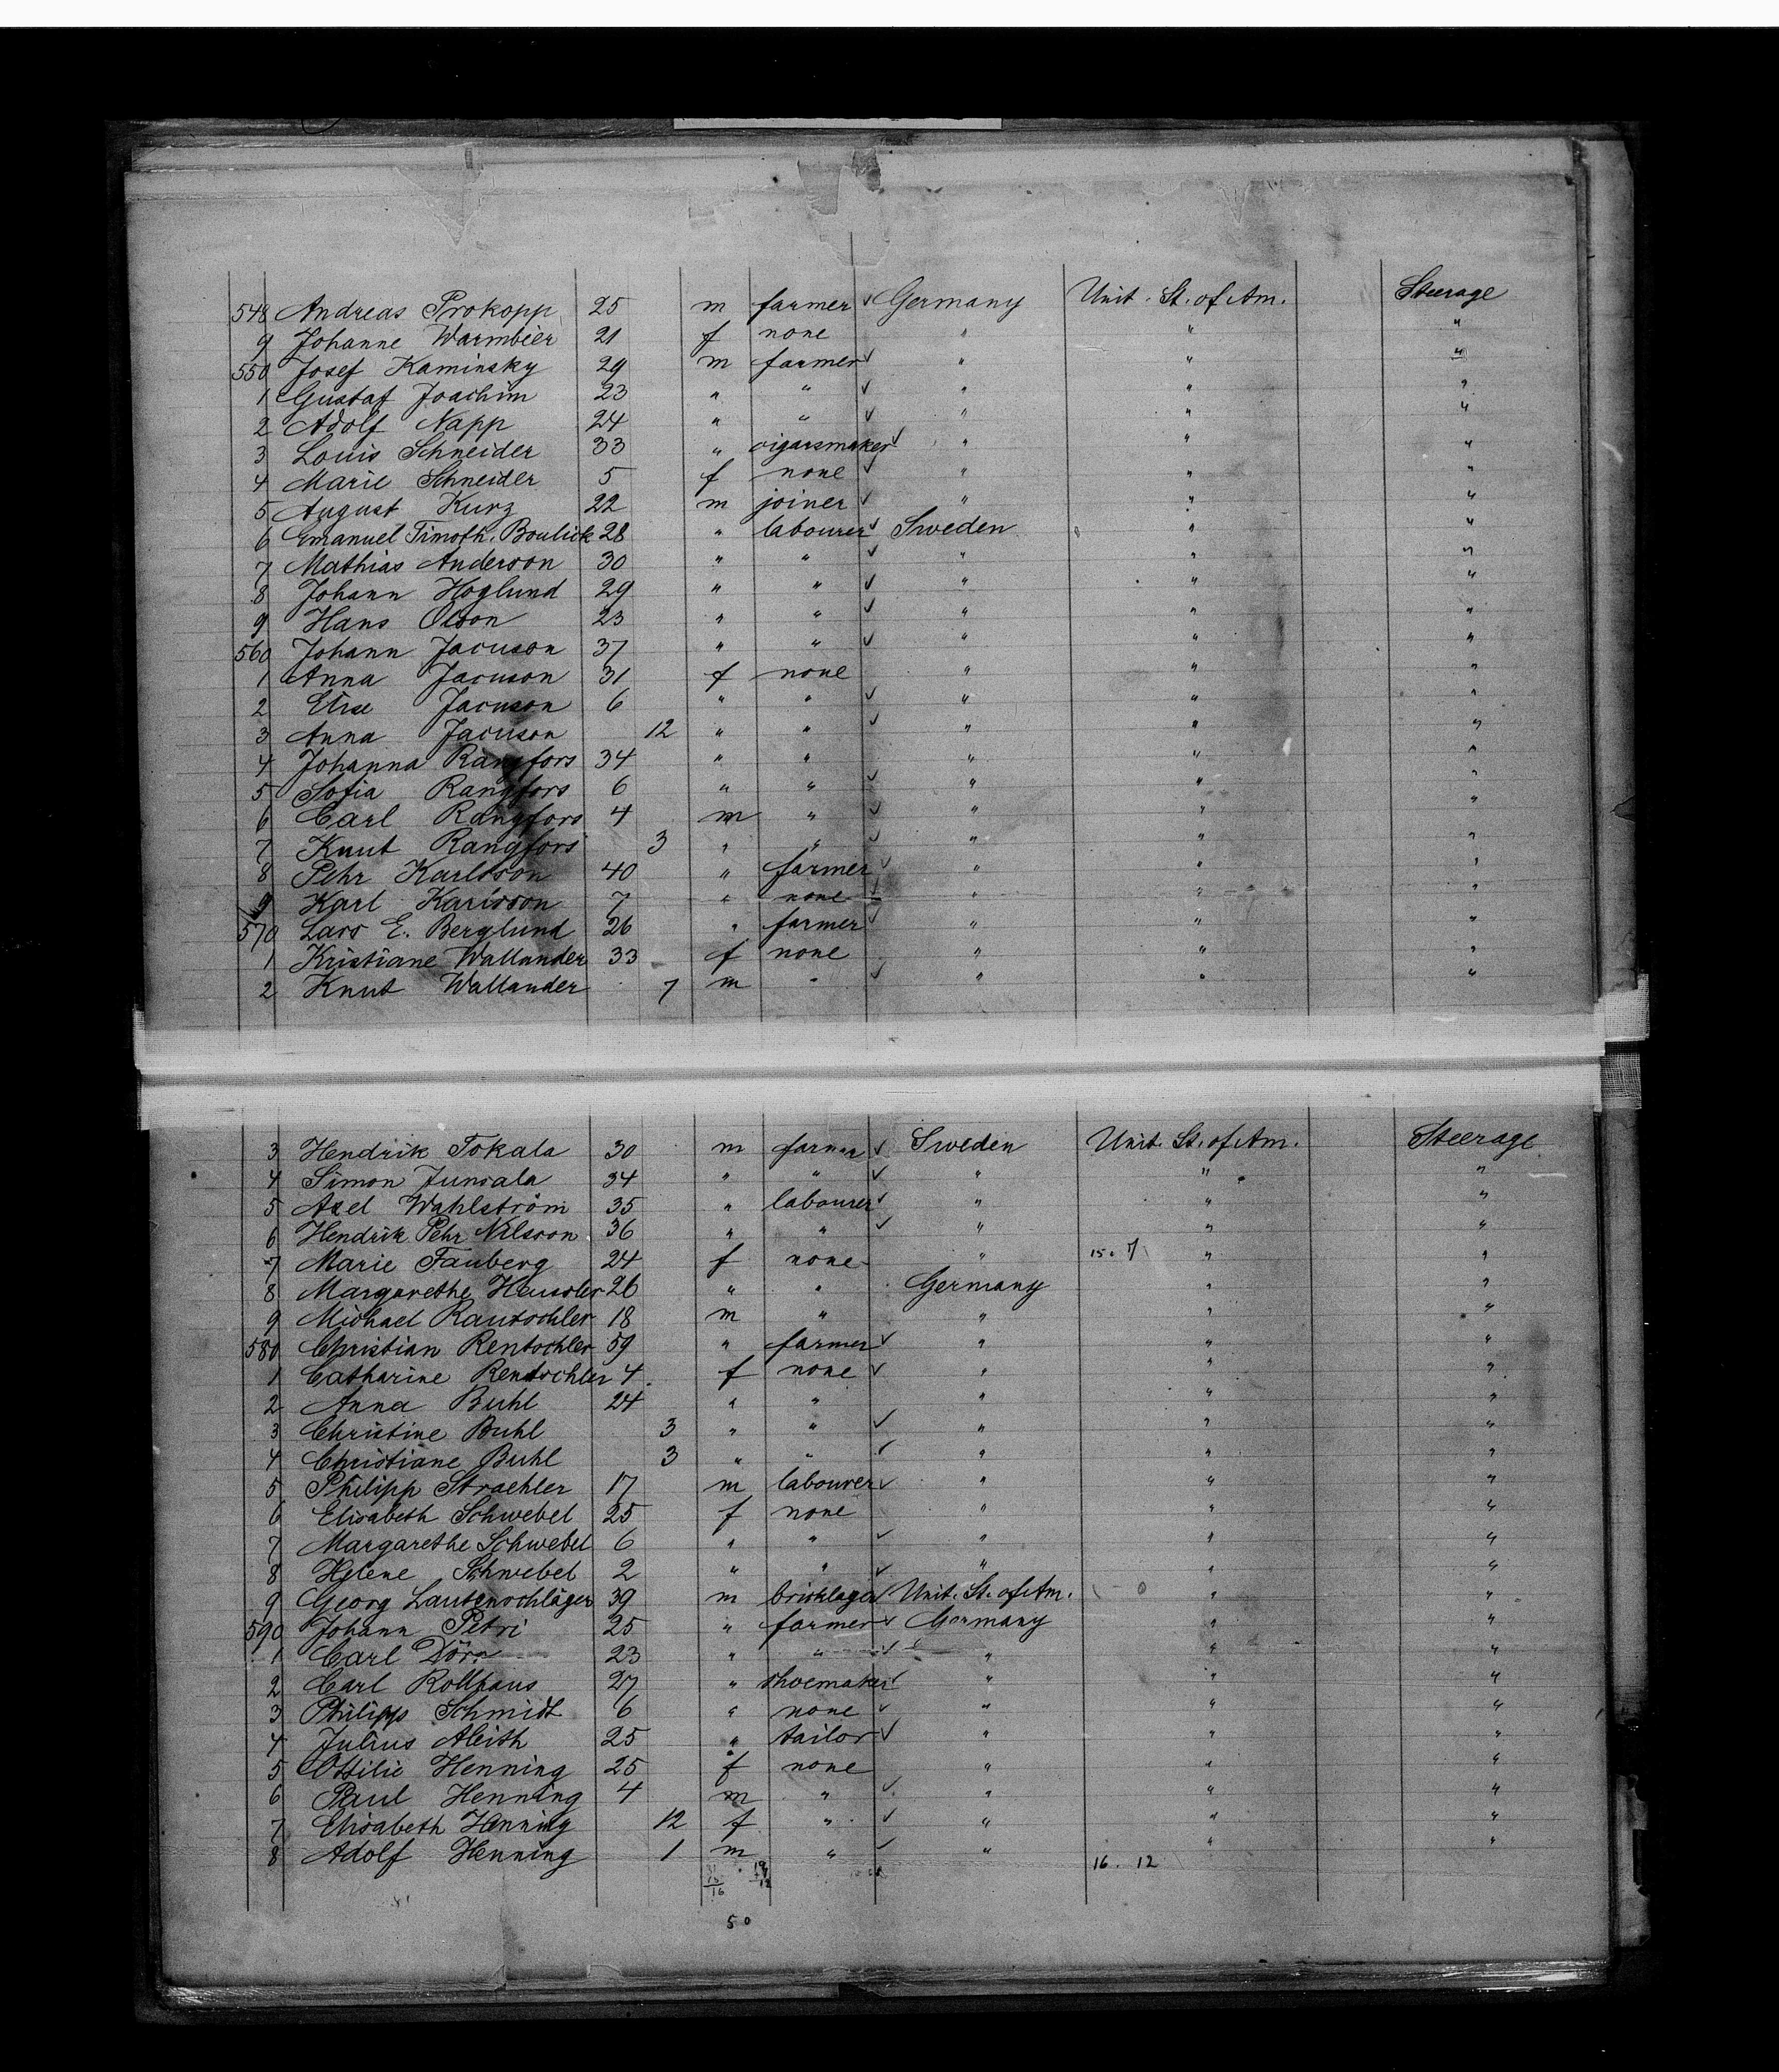 548 Andreas Prokopp 25 m farmer ✓ Germany Unit. St. of Am. Steerage
9 Johanne Warmbier 21 f none " " "
550 Josef Kaminsky 29 m farmer ✓ " " "
1 Gustaf Joachim 23 " " ✓ " " "
2 Adolf Napp 24 " " ✓ " " "
3 Louis Schneider 33 " cigarsmaker ✓ " " "
4 Marie Schneider 5 f none ✓ " " "
5 August Kurz 22 m joiner ✓ " " "
6 Emanuel Timoth. Boulick 28 " labourer ✓ Sweden " "
7 Mathias Anderson 30 " " ✓ " " "
8 Johann Hoglund 29 " " ✓ " " "
9 Hans Olson 23 " " ✓ " " "
560 Johann Jacuson 37 " " ✓ " " "
1 Anna Jacuson 31 f none " " "
2 Elise Jacuson 6 " " ✓ " " "
3 Anna Jacuson 12 " " ✓ " " "
4 Johanna Rangfors 34 " " " " "
5 Sofia Rangfors 6 " " ✓ " " "
6 Carl Rangfors 4 m " ✓ " " "
7 Knut Rangfors 3 " " ✓ " " "
8 Pehr Karlsson 40 " farmer ✓ " " "
9 Karl Karlsson 7 " none ✓ " " "
570 Lars E. Berglund 26 " farmer ✓ " " "
1 Kristiane Wallander 33 f none " " "
2 Knut Wallander 7 m " ✓ " " "
3 Hendrik Tokala 30 m farmer ✓ Sweden Unit. St. of Am. Steerage
4 Simon 34 " " ✓ " " "
5 Axel Wahlström 35 " labourer ✓ " " "
6 Hendrik Pehr Nilsson 36 " " ✓ " " "
7 Marie Fauberg 24 f none " 15. 7 " "
8 Margarethe Heussler 26 " " Germany " "
9 Michael Rautschler 18 m " " " "
580 Christian Rentschler 59 " farmer ✓ " " "
1 Catharine Rentschler 4 f none ✓ " " "
2 Anna Buhl 24 " " " " "
3 Christine Buhl 3 " " ✓ " " "
4 Christiane Buhl 3 " " ✓ " " "
5 Philipp Straehler 17 m labourer ✓ " " "
6 Elisabeth Schwebel 25 f none " " "
7 Margarethe Schwebel 6 " " ✓ " " "
8 Helene Schwebel 2 " " ✓ " " "
9 Georg Lautenschläger 39 m ✓ Unit. St. of Am. 0 " "
590 Johann Petri 25 " farmer ✓ Germany " "
1 Carl 23 " " ✓ " " "
2 Carl Rollhaus 27 " shoemaker ✓ " " "
3 Philipp Schmidt 6 " none ✓ " " "
4 Julius Aleith 25 " tailor ✓ " " "
5 Ottilie Henning 25 f none " " "
6 Paul Henning 4 m " ✓ " " "
7 Elisabeth Henning 12 f " ✓ " " "
8 Adolf Henning 1 m " ✓ " " "
16. 12
50